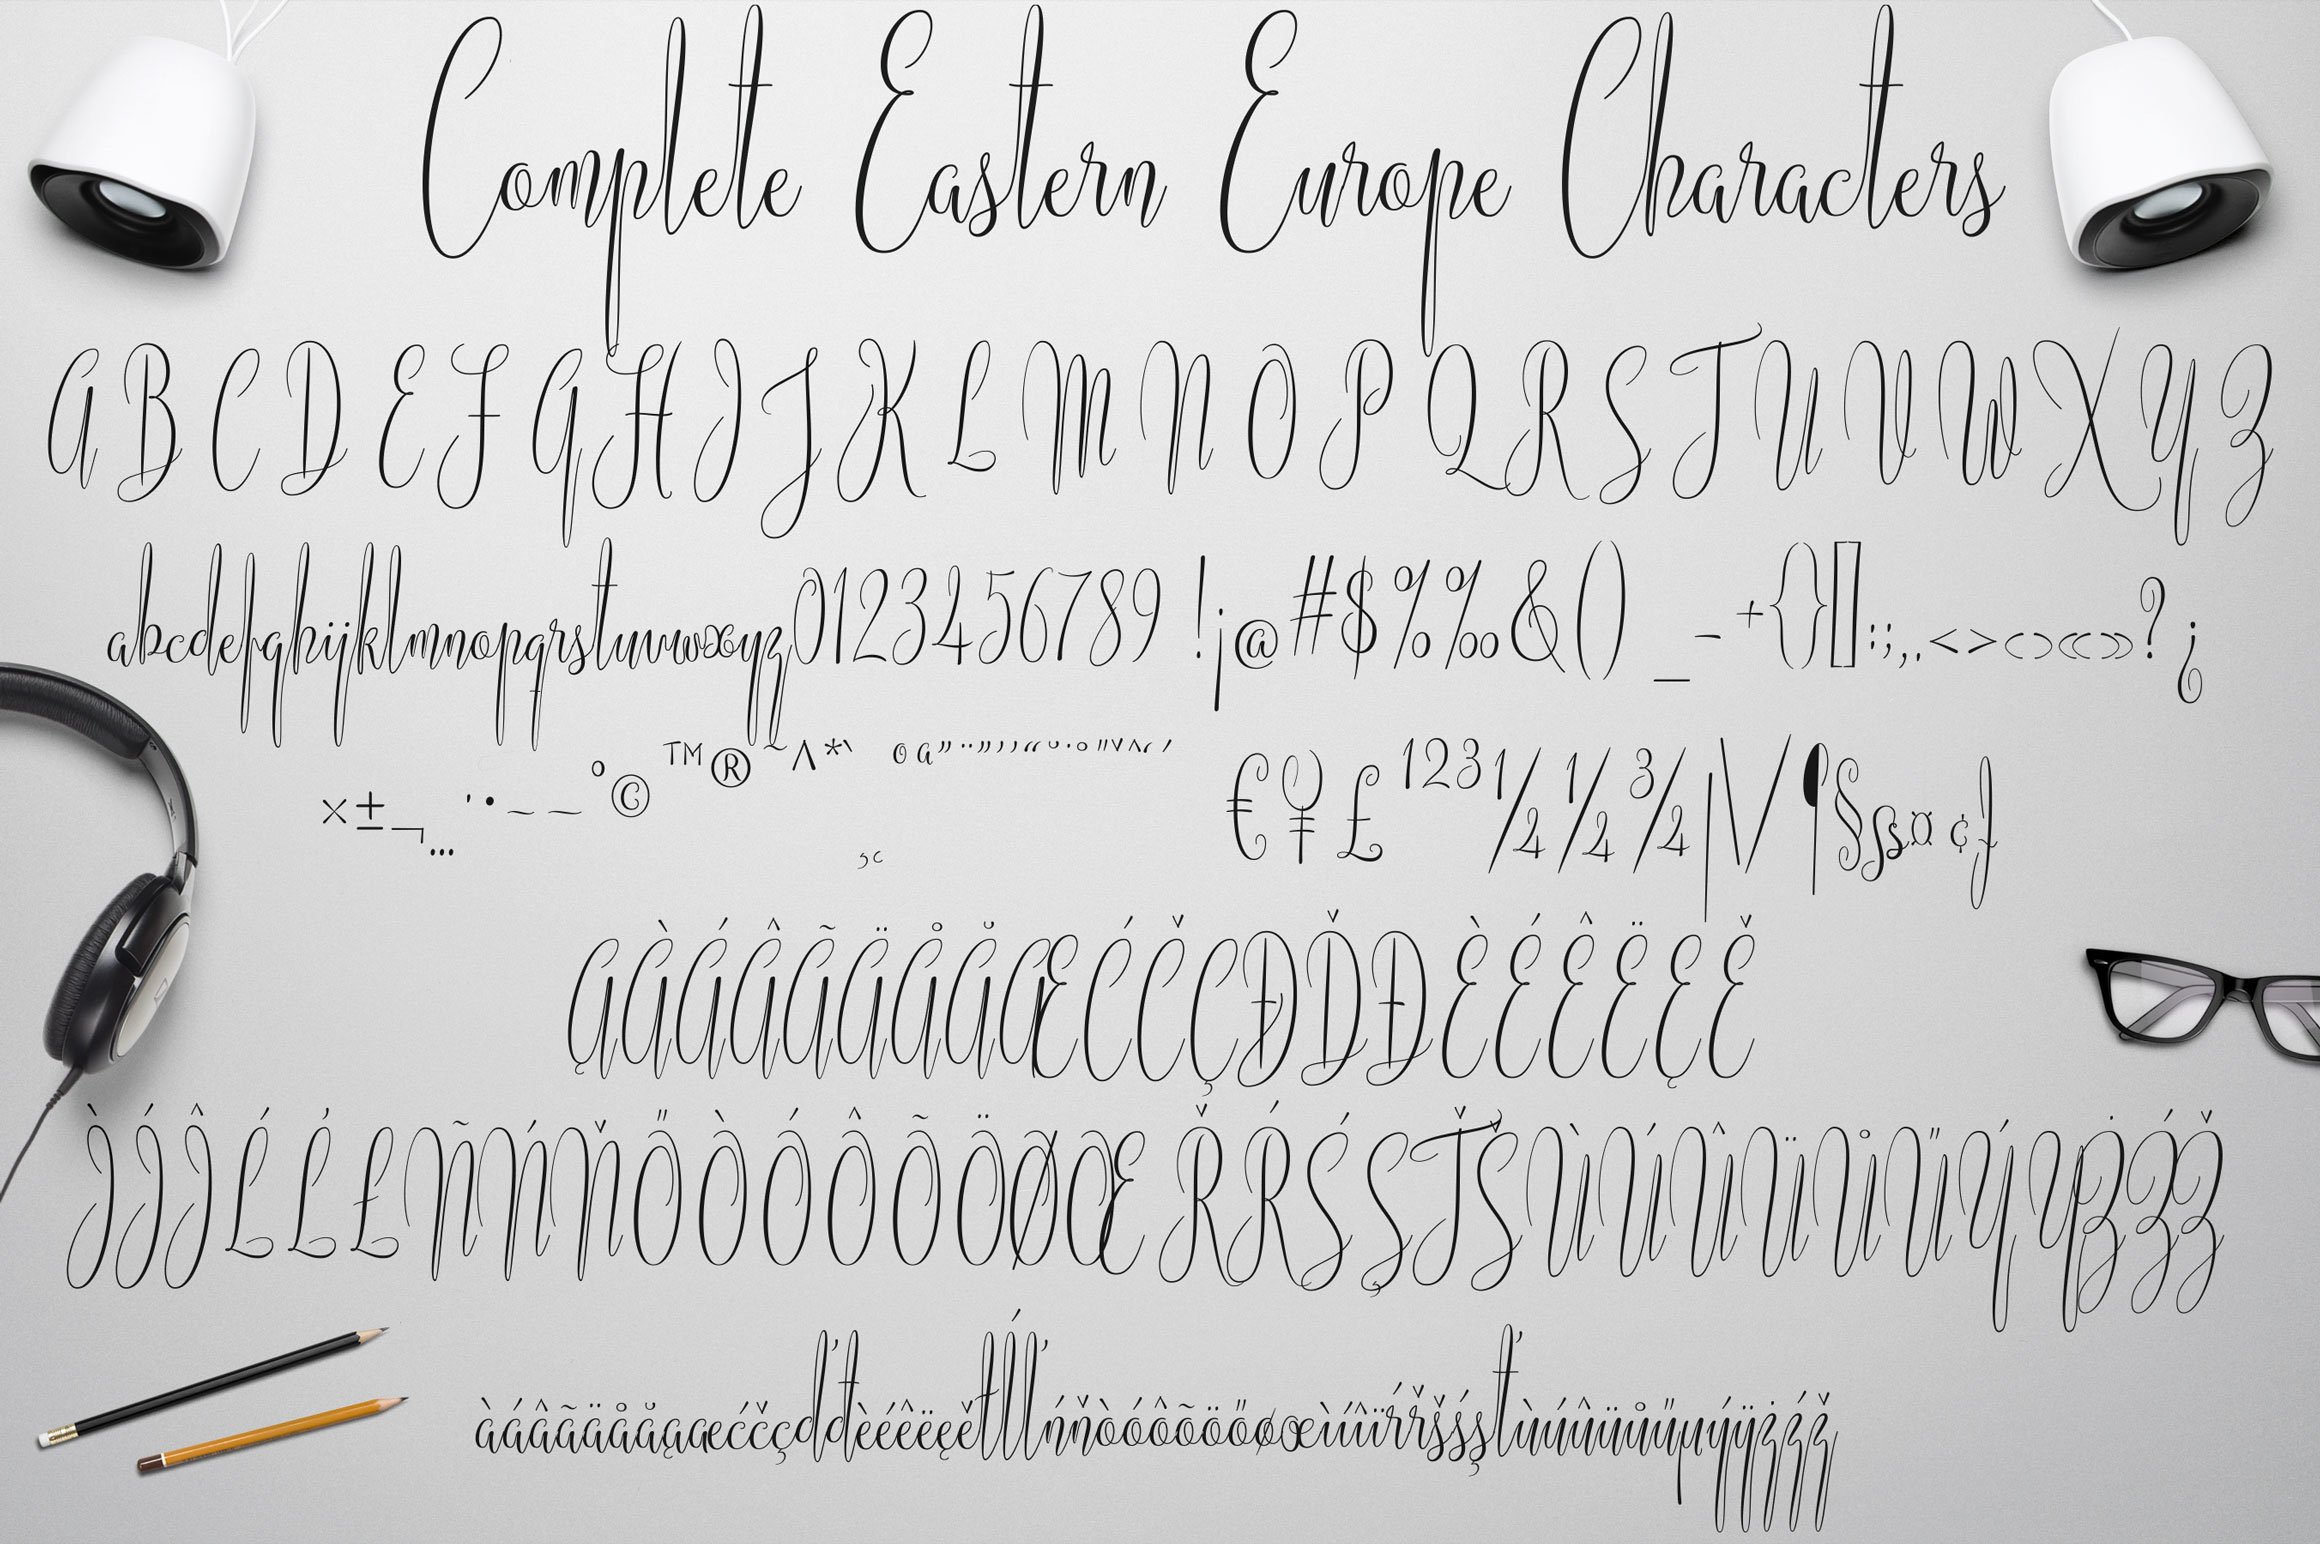 Complete Eastern Europe Characters
A B C D E F G H I J K L M N O P Q R S T U V W X Y Z
abcdefghijklmnopqrstuvwxyz0123456789 !¡@#$%‰&() _-+{}[]:;,.<>‹›«»?¿
×±¬…'•–—°©™®~^*` €¥£¹²³½¼¾|\/¶§ß¤¢ƒ
ĄÀÁÂÃÄÅĂÆĆČÇĐĎĐÈÉÊËĘĚ
ÌÍÎĹĽŁÑŃŇŐÒÓÔÕÖØŒŘŔŚŞŤŠÙÚÛÜŮŰÝŻŹŽ
àáâãäåăąæćčçďđèéêëęěłĺľńňòóôõöőøœìíîïŕřšśşťùúûüůűµýÿżźž